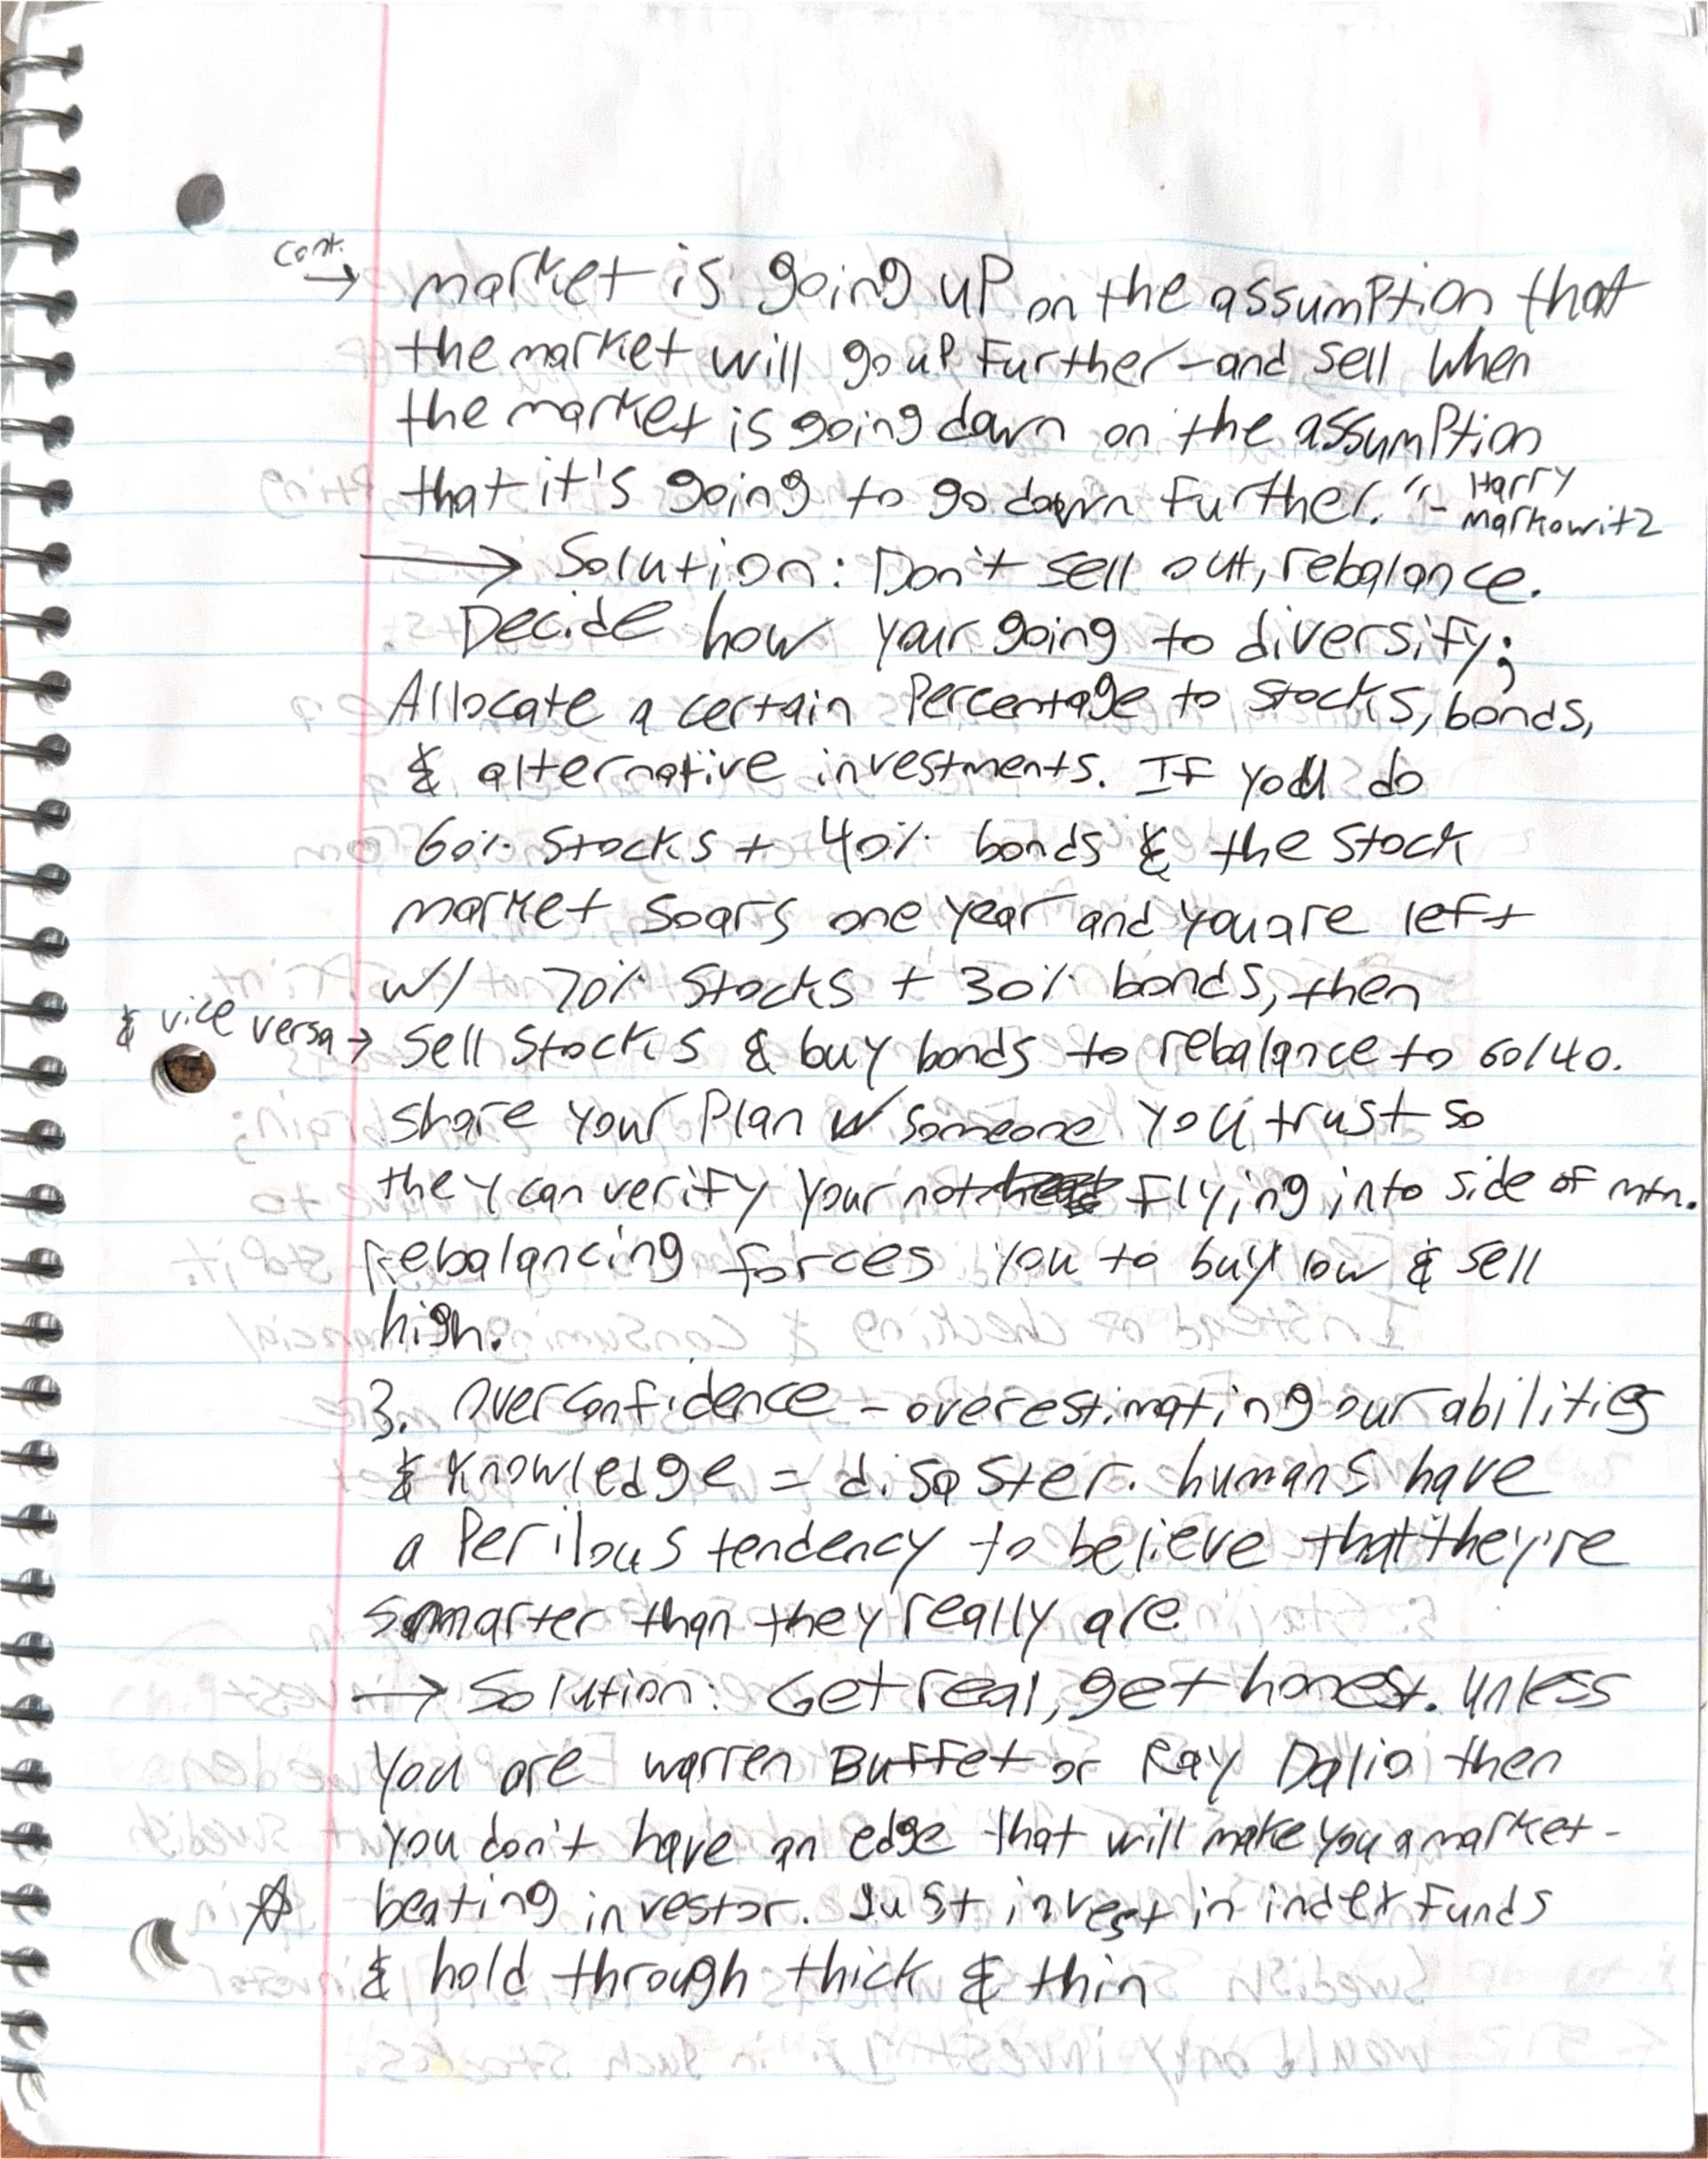 cont.
→ market is going up on the assumption that
the market will go up further - and sell when
the market is going down on the assumption
that it's going to go down further." - Harry
Markowitz
→ Solution: Don't sell out, rebalance.
Decide how your going to diversify;
Allocate a certain percentage to stocks, bonds,
& alternative investments. If you do
60% stocks + 40% bonds & the stock
market soars one year and you are left
w/ 70% stocks + 30% bonds, then
& vice versa → sell stocks & buy bonds to rebalance to 60/40.
share your plan w/ someone you trust so
they can verify your not flying into side of mtn.
Rebalancing forces you to buy low & sell
high.
3. Overconfidence - overestimating our abilities
& knowledge = disaster. humans have
a perilous tendency to believe that they're
smarter than they really are
→ Solution: Get real, get honest. unless
you are warren Buffet or Ray Dalio then
you don't have an edge that will make you a market-
☆ beating investor. Just invest in index funds
& hold through thick & thin